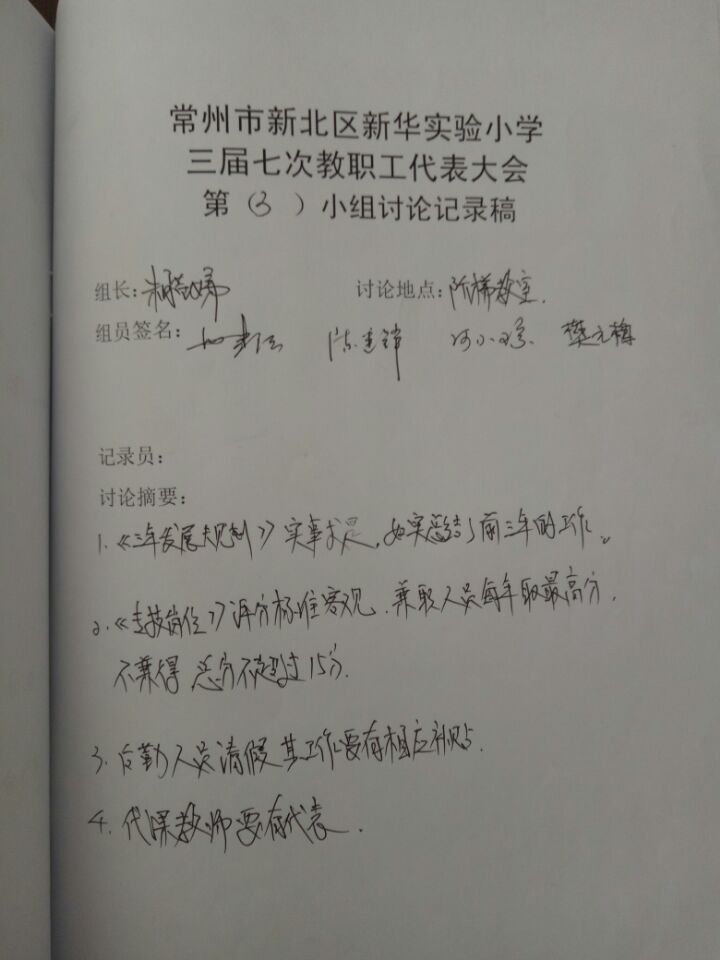 常州市新北区新华实验小学
三届七次教职工代表大会
第（3）小组讨论记录稿
组长：
讨论地点：阶梯教室.
组员签名：
记录员：
讨论摘要：
1.《三年发展规划》实事求是，如实总结了前三年的工作。
2.《专技岗位》评分标准客观.兼职人员每年取最高分.
不兼得 总分不超过15分.
3.后勤人员请假其工作要有相应补贴.
4.代课教师要有代表.